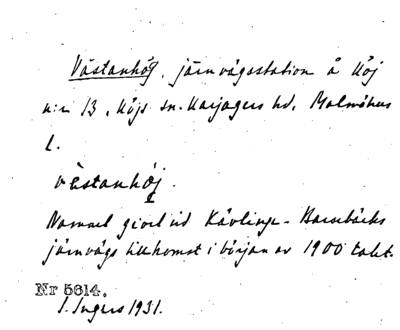 Västanhög, järnvägsstation å Höj
n:r 13, Höjs sn. Harjagers hd, Malmöhus
L.
västanhöj.
Namnet givet vid Kävlinge - Barsebäcks
järnvägs tillkomst i början av 1900 talet.
Nr 5614.
I. Ingers 1931.